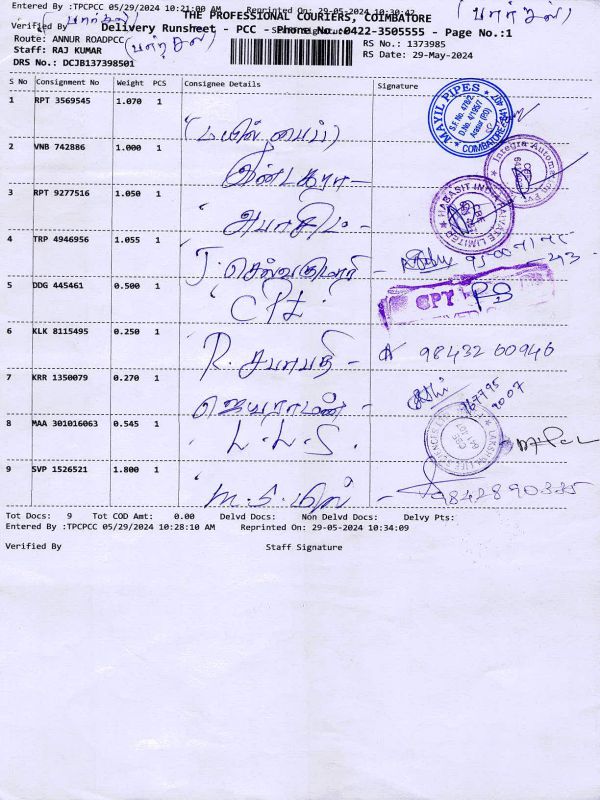 Entered By :TPCPCC 05/29/2024 10:21:00 AM Reprinted On: 29-05-2024 10:30:42
THE PROFESSIONAL COURIERS, COIMBATORE
(பார்சல்)
(பார்சல்)
Verified By Staff Signature
Delivery Runsheet - PCC - Phone No.:0422-3505555 - Page No.:1
Route: ANNUR ROADPCC
(பார்சல்)
RS No.: 1373985
Staff: RAJ KUMAR
RS Date: 29-May-2024
DRS No.: DCJB137398501
S No Consignment No Weight PCS Consignee Details Signature
1 RPT 3569545 1.070 1
(மயில் பைப்)
MAYIL PIPES
S.F. No. 476/2
D.No. 4/195/7
COIMBATORE
2 VNB 742886 1.000 1
Integra Automation
3 RPT 9277516 1.050 1
HABASIT PRIVATE LIMITED
CBE
4 TRP 4946956 1.055 1
J. செல்வகுமார் -
5 DDG 445461 0.500 1
CPT
6 KLK 8115495 0.250 1
R. சபாபதி - 98432 60946
7 KRR 1350079 0.270 1
ஜெயராமன் -
8 MAA 301016063 0.545 1
L.L.S. -
9 SVP 1526521 1.800 1
M.S. மில் - 9842890335
Tot Docs: 9 Tot COD Amt: 0.00 Delvd Docs: Non Delvd Docs: Delvy Pts:
Entered By :TPCPCC 05/29/2024 10:28:10 AM Reprinted On: 29-05-2024 10:34:09
Verified By Staff Signature